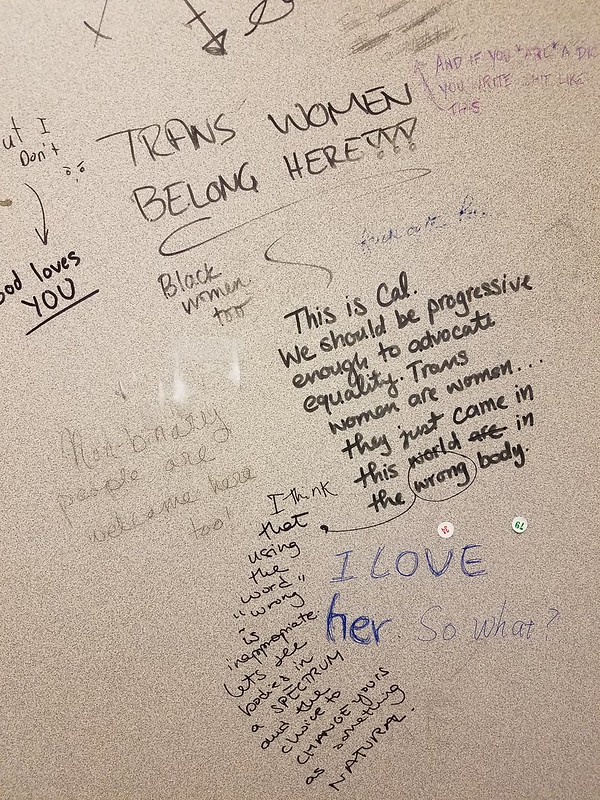 AND IF YOU *ARE* A
YOU WRITE SHIT LIKE
THIS
ut I
Don't
TRANS WOMEN
BELONG HERE!!!
od loves
YOU
Black
women
too
This is Cal.
We should be progressive
enough to advocate
equality. Trans
women are women...
they just came in
this world are in
the wrong body.
Non-binary
people are
welcome here
too!
I think
that
using
the
word
"wrong"
is
inappropriate.
Lets see
bodies in
a SPECTRUM
and the
choice to
CHANGE YOURS
as something
NATURAL.
I LOVE
her. So what?